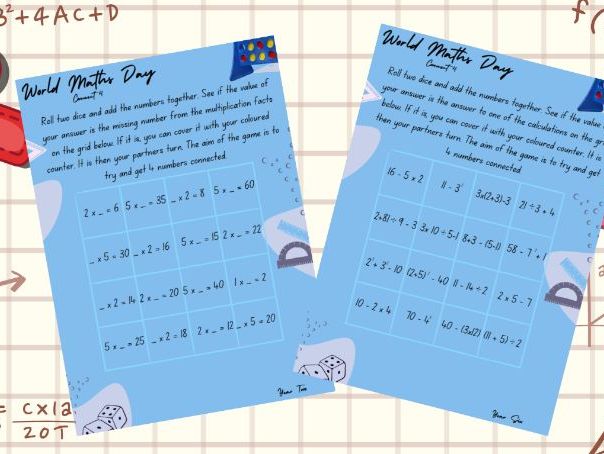 3²+4AC+D
f(
World Maths Day
Connect 4
Roll two dice and add the numbers together. See if the value of
your answer is the missing number from the multiplication facts
on the grid below. If it is, you can cover it with your coloured
counter. It is then your partners turn. The aim of the game is to
try and get 4 numbers connected.
2 x _ = 6 5 x _ = 35 _ x 2 = 8 5 x _ = 60
_ x 5 = 30 _ x 2 = 16 5 x _ = 15 2 x _ = 22
_ x 2 = 14 2 x _ = 20 5 x _ = 40 1 x _ = 2
5 x _ = 25 _ x 2 = 18 2 x _ = 12 _ x 5 = 20
Year Two
World Maths Day
Connect 4
Roll two dice and add the numbers together. See if the value
your answer is the answer to one of the calculations on the gr
below. If it is, you can cover it with your coloured counter. It is
then your partners turn. The aim of the game is to try and get
4 numbers connected.
16 - 5 x 2 11 - 3² 3x(2+3)-3 21 ÷ 3 + 4
2+81 ÷ 9 - 3 3x 10 ÷ 5-1 8+3 - (5-1) 58 - 7² + 1
2² + 3² - 10 (2+5)² - 40 11 - 14 ÷ 2 2 x 5 - 7
10 - 2 x 4 70 - 4³ 40 - (3x12) (11 + 5) ÷ 2
Year Six
= Cx12
20T